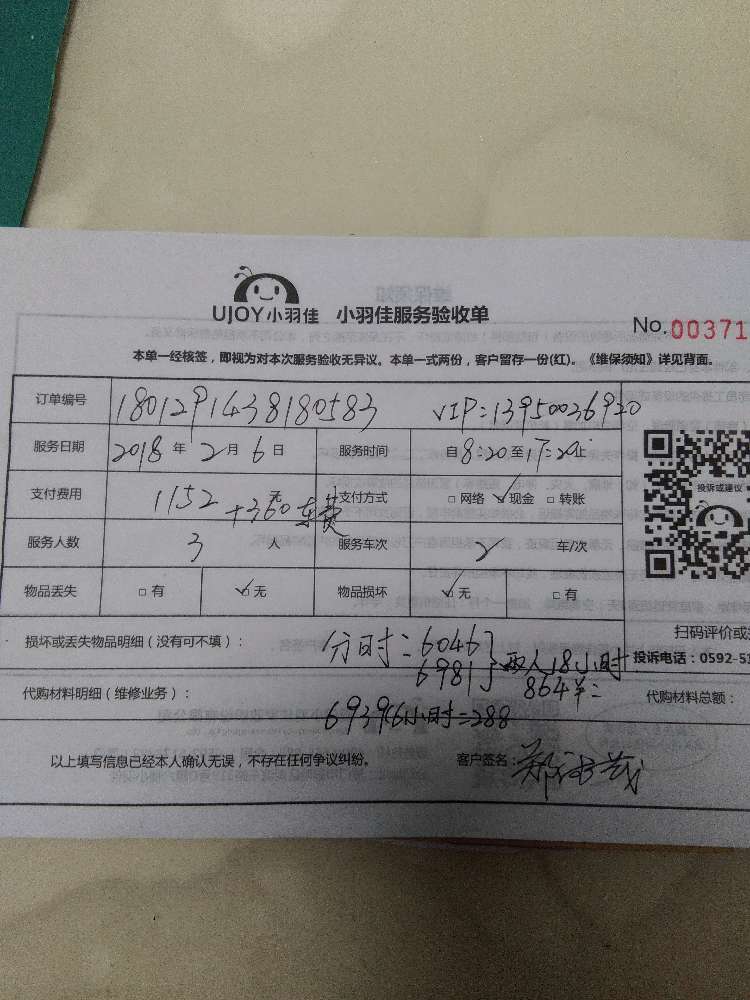 UJOY小羽佳 小羽佳服务验收单
No.00371
本单一经核签，即视为对本次服务验收无异议。本单一式两份，客户留存一份(红)。《维保须知》详见背面。
订单编号 1801291438180583 VIP:13950026920
服务日期 2018年2月6日 服务时间 自8:20至17:20止
支付费用 1152元+360车费 支付方式 □网络 ✓现金 □转账
投诉或建议
服务人数 3人 服务车次 2车/次
物品丢失 □有 ✓无 物品损坏 ✓无 □有
扫码评价或
损坏或丢失物品明细（没有可不填）： 分时:6046
投诉电话：0592-51
6981 两人18小时
864
代购材料明细（维修业务）： 代购材料总额：
6939(6小时=288
以上填写信息已经本人确认无误，不存在任何争议纠纷。 客户签名：